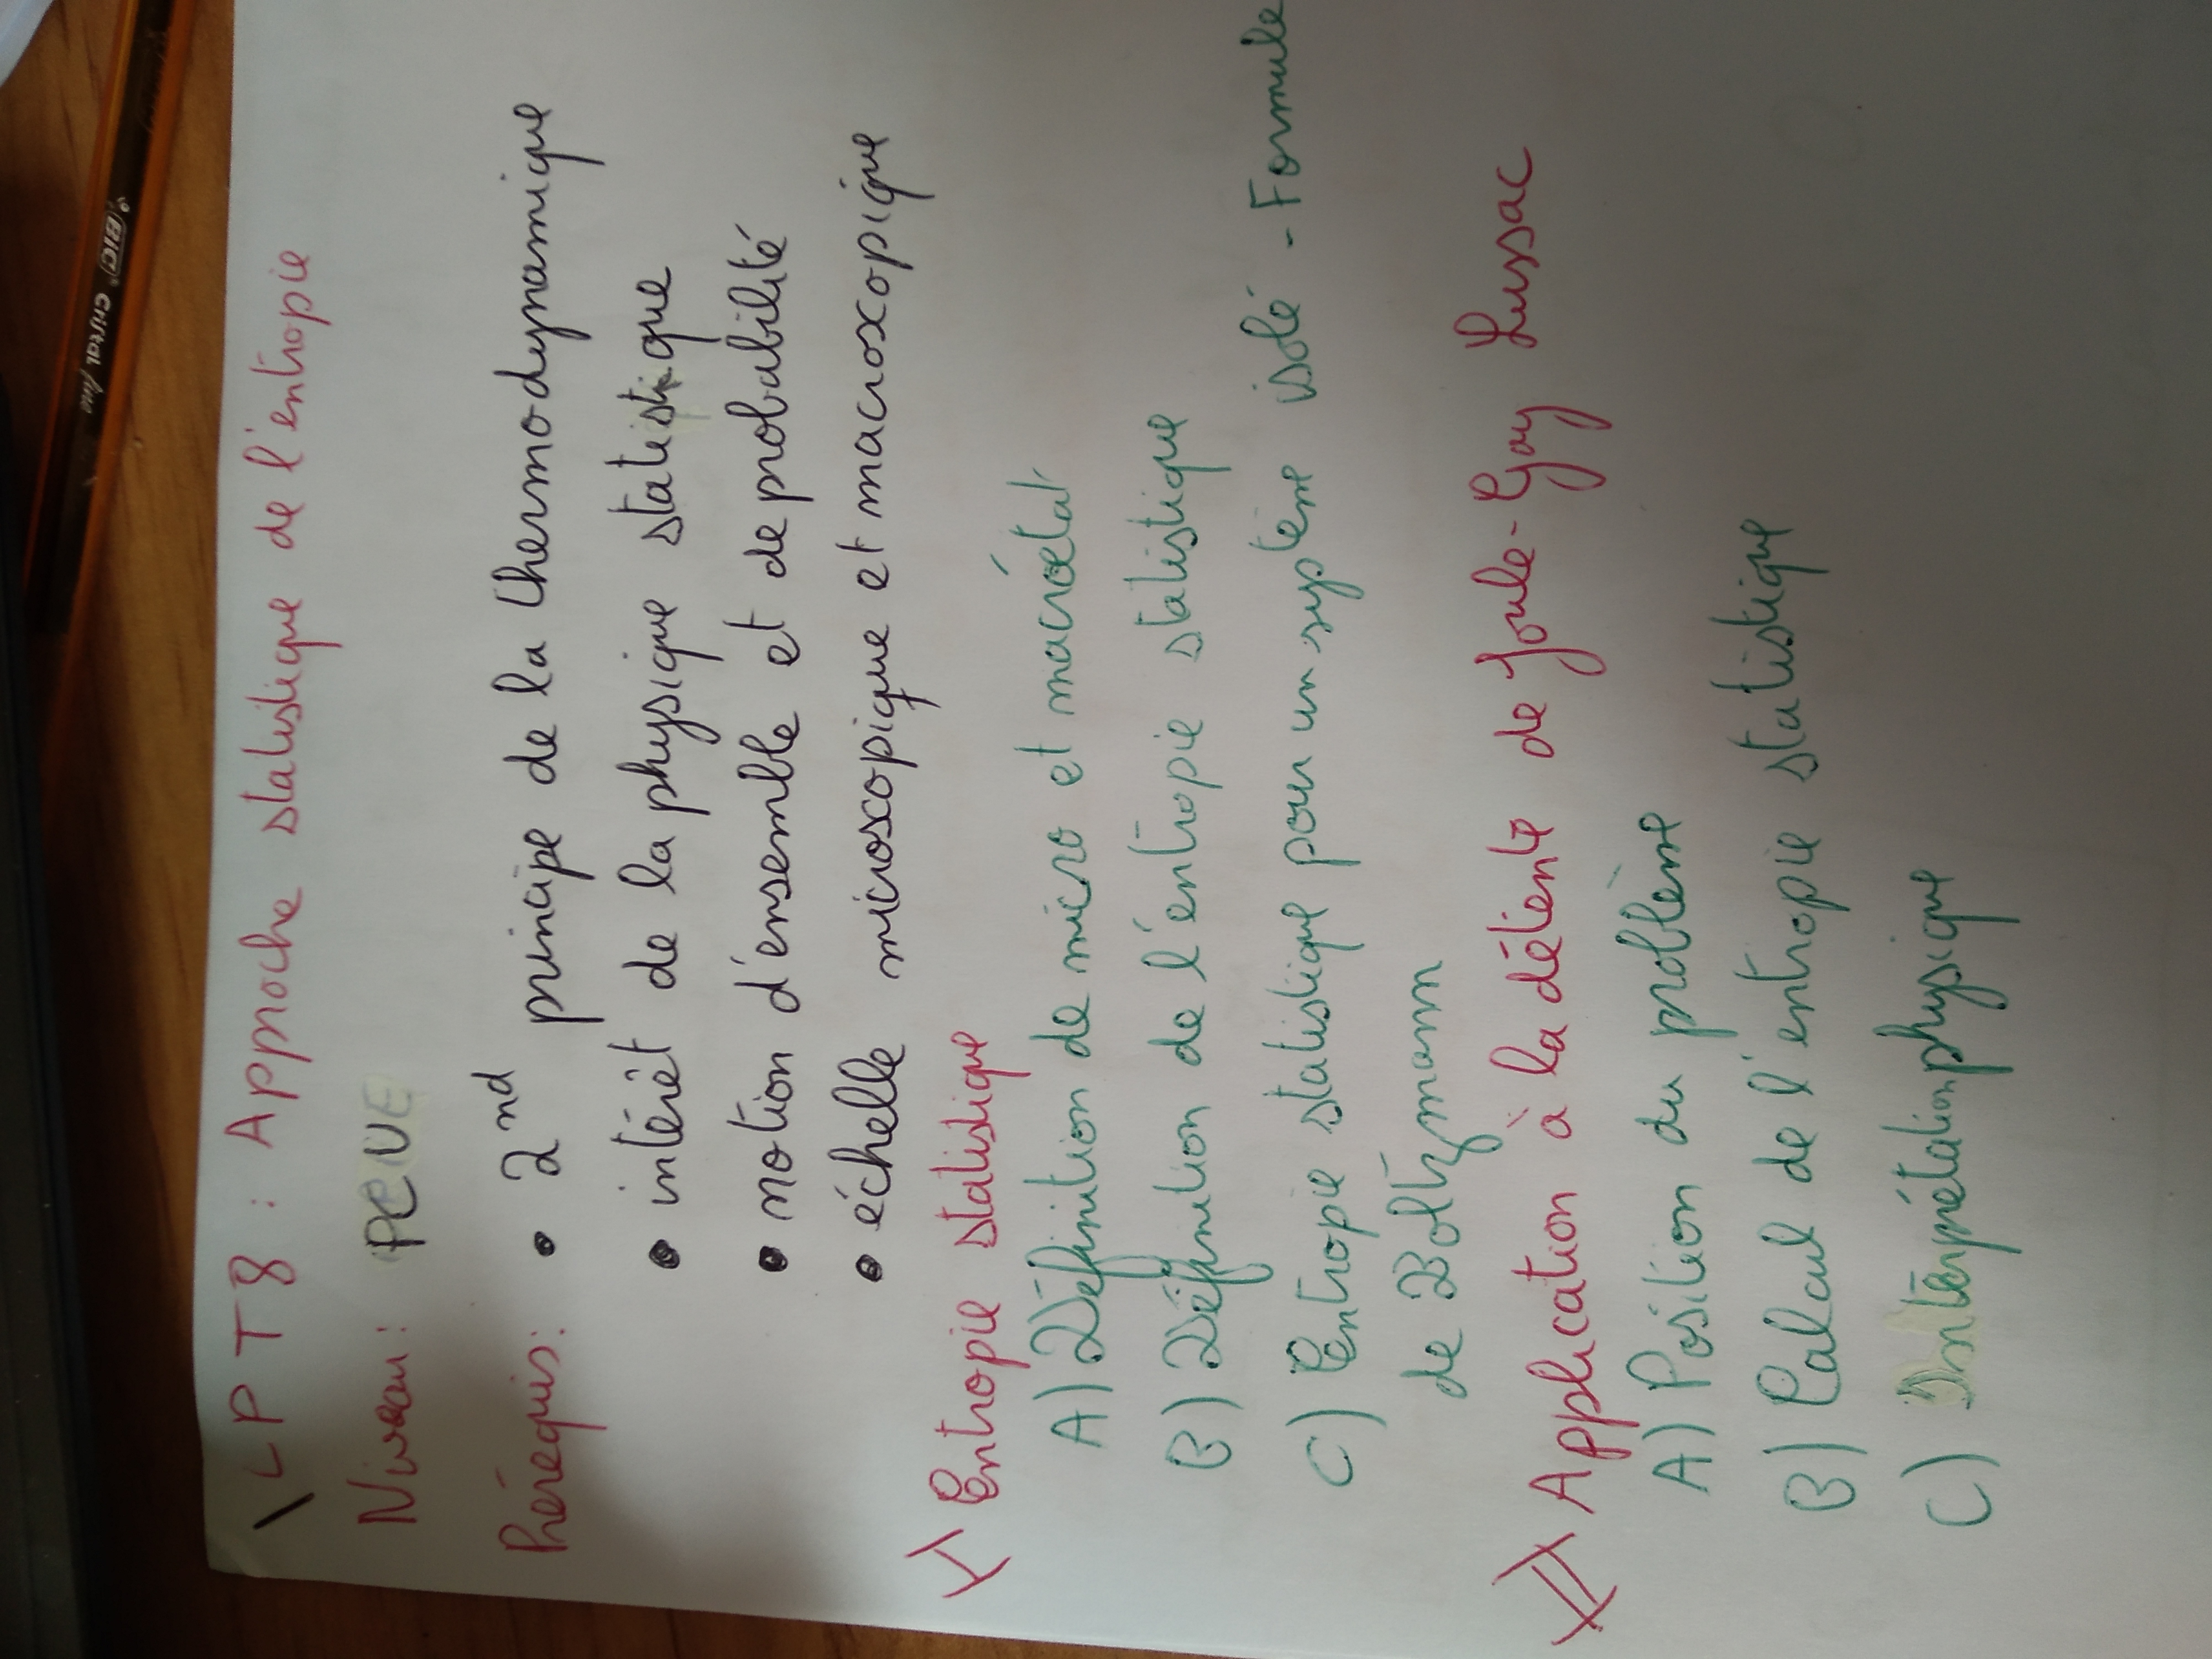 LPT8 : Approche statistique de l'entropie
Niveau :
Prérequis : • 2nd principe de la thermodynamique
• intérêt de la physique statistique
• notion d'ensemble et de probabilité
• échelle microscopique et macroscopique
I) Entropie statistique
A) Définition de micro et macroétat
B) Définition de l'entropie statistique
C) Entropie statistique pour un système isolé - Formule
de Boltzmann
II) Application à la détente de Joule-Gay Lussac
A) Position du problème
B) Calcul de l'entropie statistique
C) Interprétation physique
BIC cristal fine